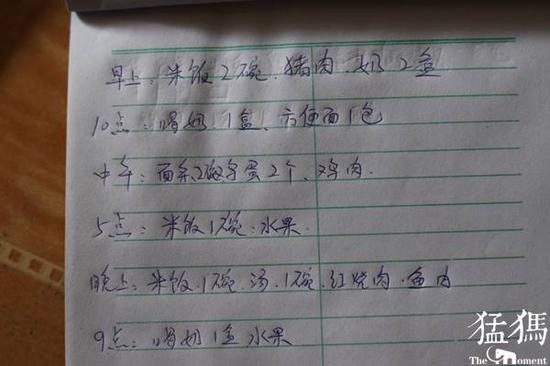 早上：米饭2碗、猪肉、奶2盒
10点：喝奶、1盒、方便面1包
中午：面条2碗 蛋2个、鸡肉.
5点：米饭1碗：水果.
晚上：米饭、1碗、汤、1碗、红烧肉·鱼肉
9点：喝奶1盒 水果
猛犸
The Moment